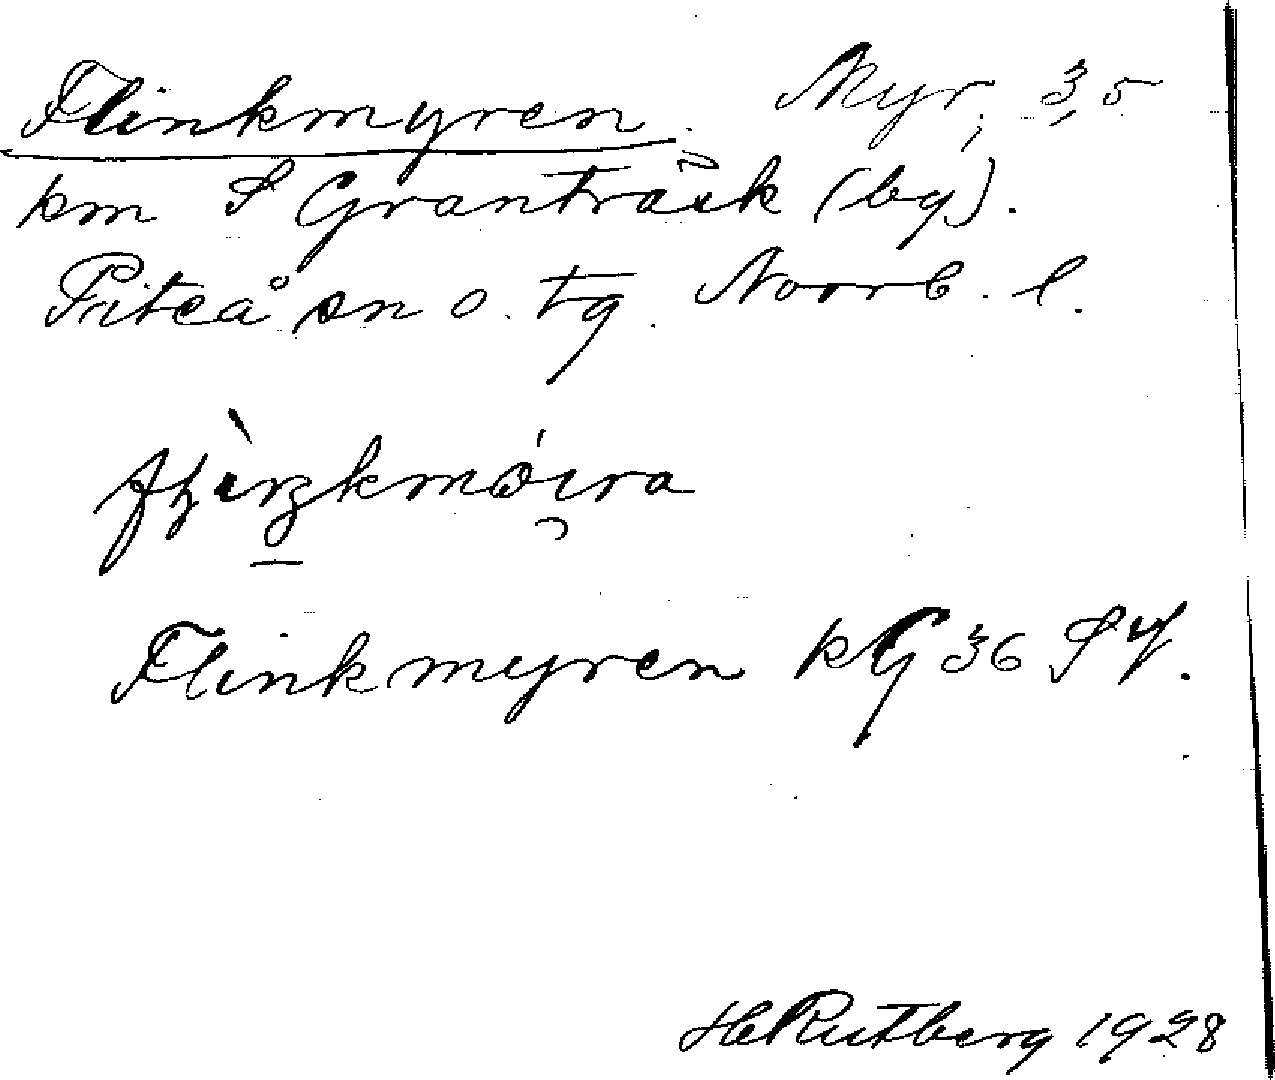 Flinkmyren. Myr, 3,5
km S Granträsk (by).
Piteå sn o. tg. Norrb. l.
Flinkmyren kG 36 SV.
H Rutberg 1928